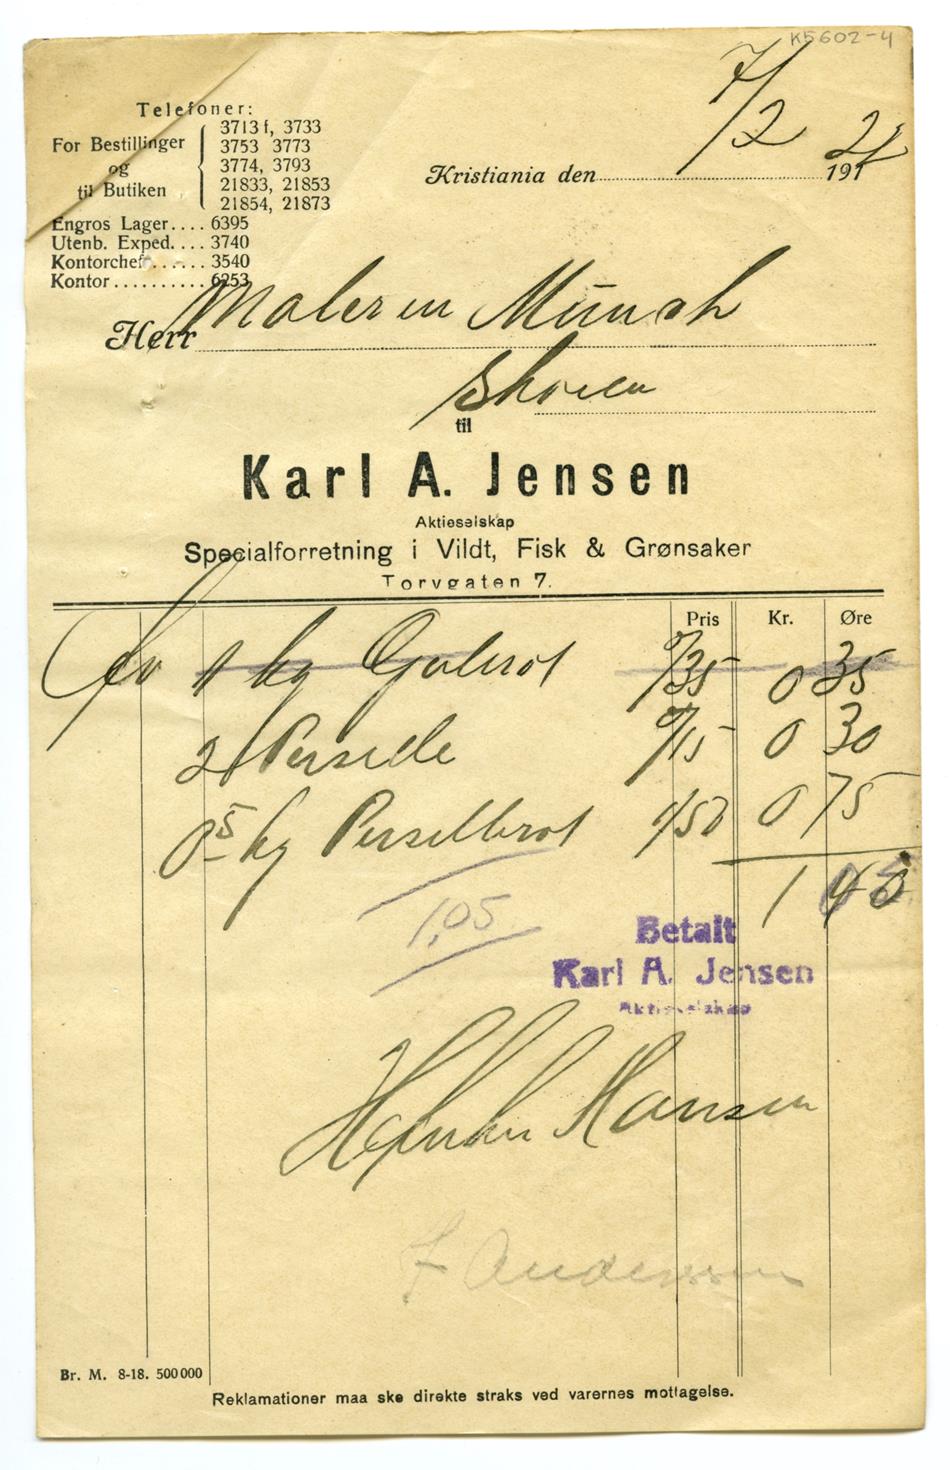 K5602-4
7/2 21
Telefoner:
For Bestillinger og til Butiken
3713 f, 3733
3753 3773
3774, 3793
21833, 21853
21854, 21873
Engros Lager.... 6395
Utenb. Exped.... 3740
Kontorchef...... 3540
Kontor.......... 6253
Kristiania den 191
Herr Maleren Munch
Skøien
til
Karl A. Jensen
Aktieselskap
Specialforretning i Vildt, Fisk & Grønsaker
Torvgaten 7.
Pris Kr. Øre
1 kg Gulerot 0/35 0 35
2 Persille 0/15 0 30
0 5 kg Persillerot 1/50 0 75
1 40
1,05
Betalt
Karl A. Jensen
Aktieselskap
Hansen
Andersson
Br. M. 8-18. 500 000
Reklamationer maa ske direkte straks ved varernes mottagelse.